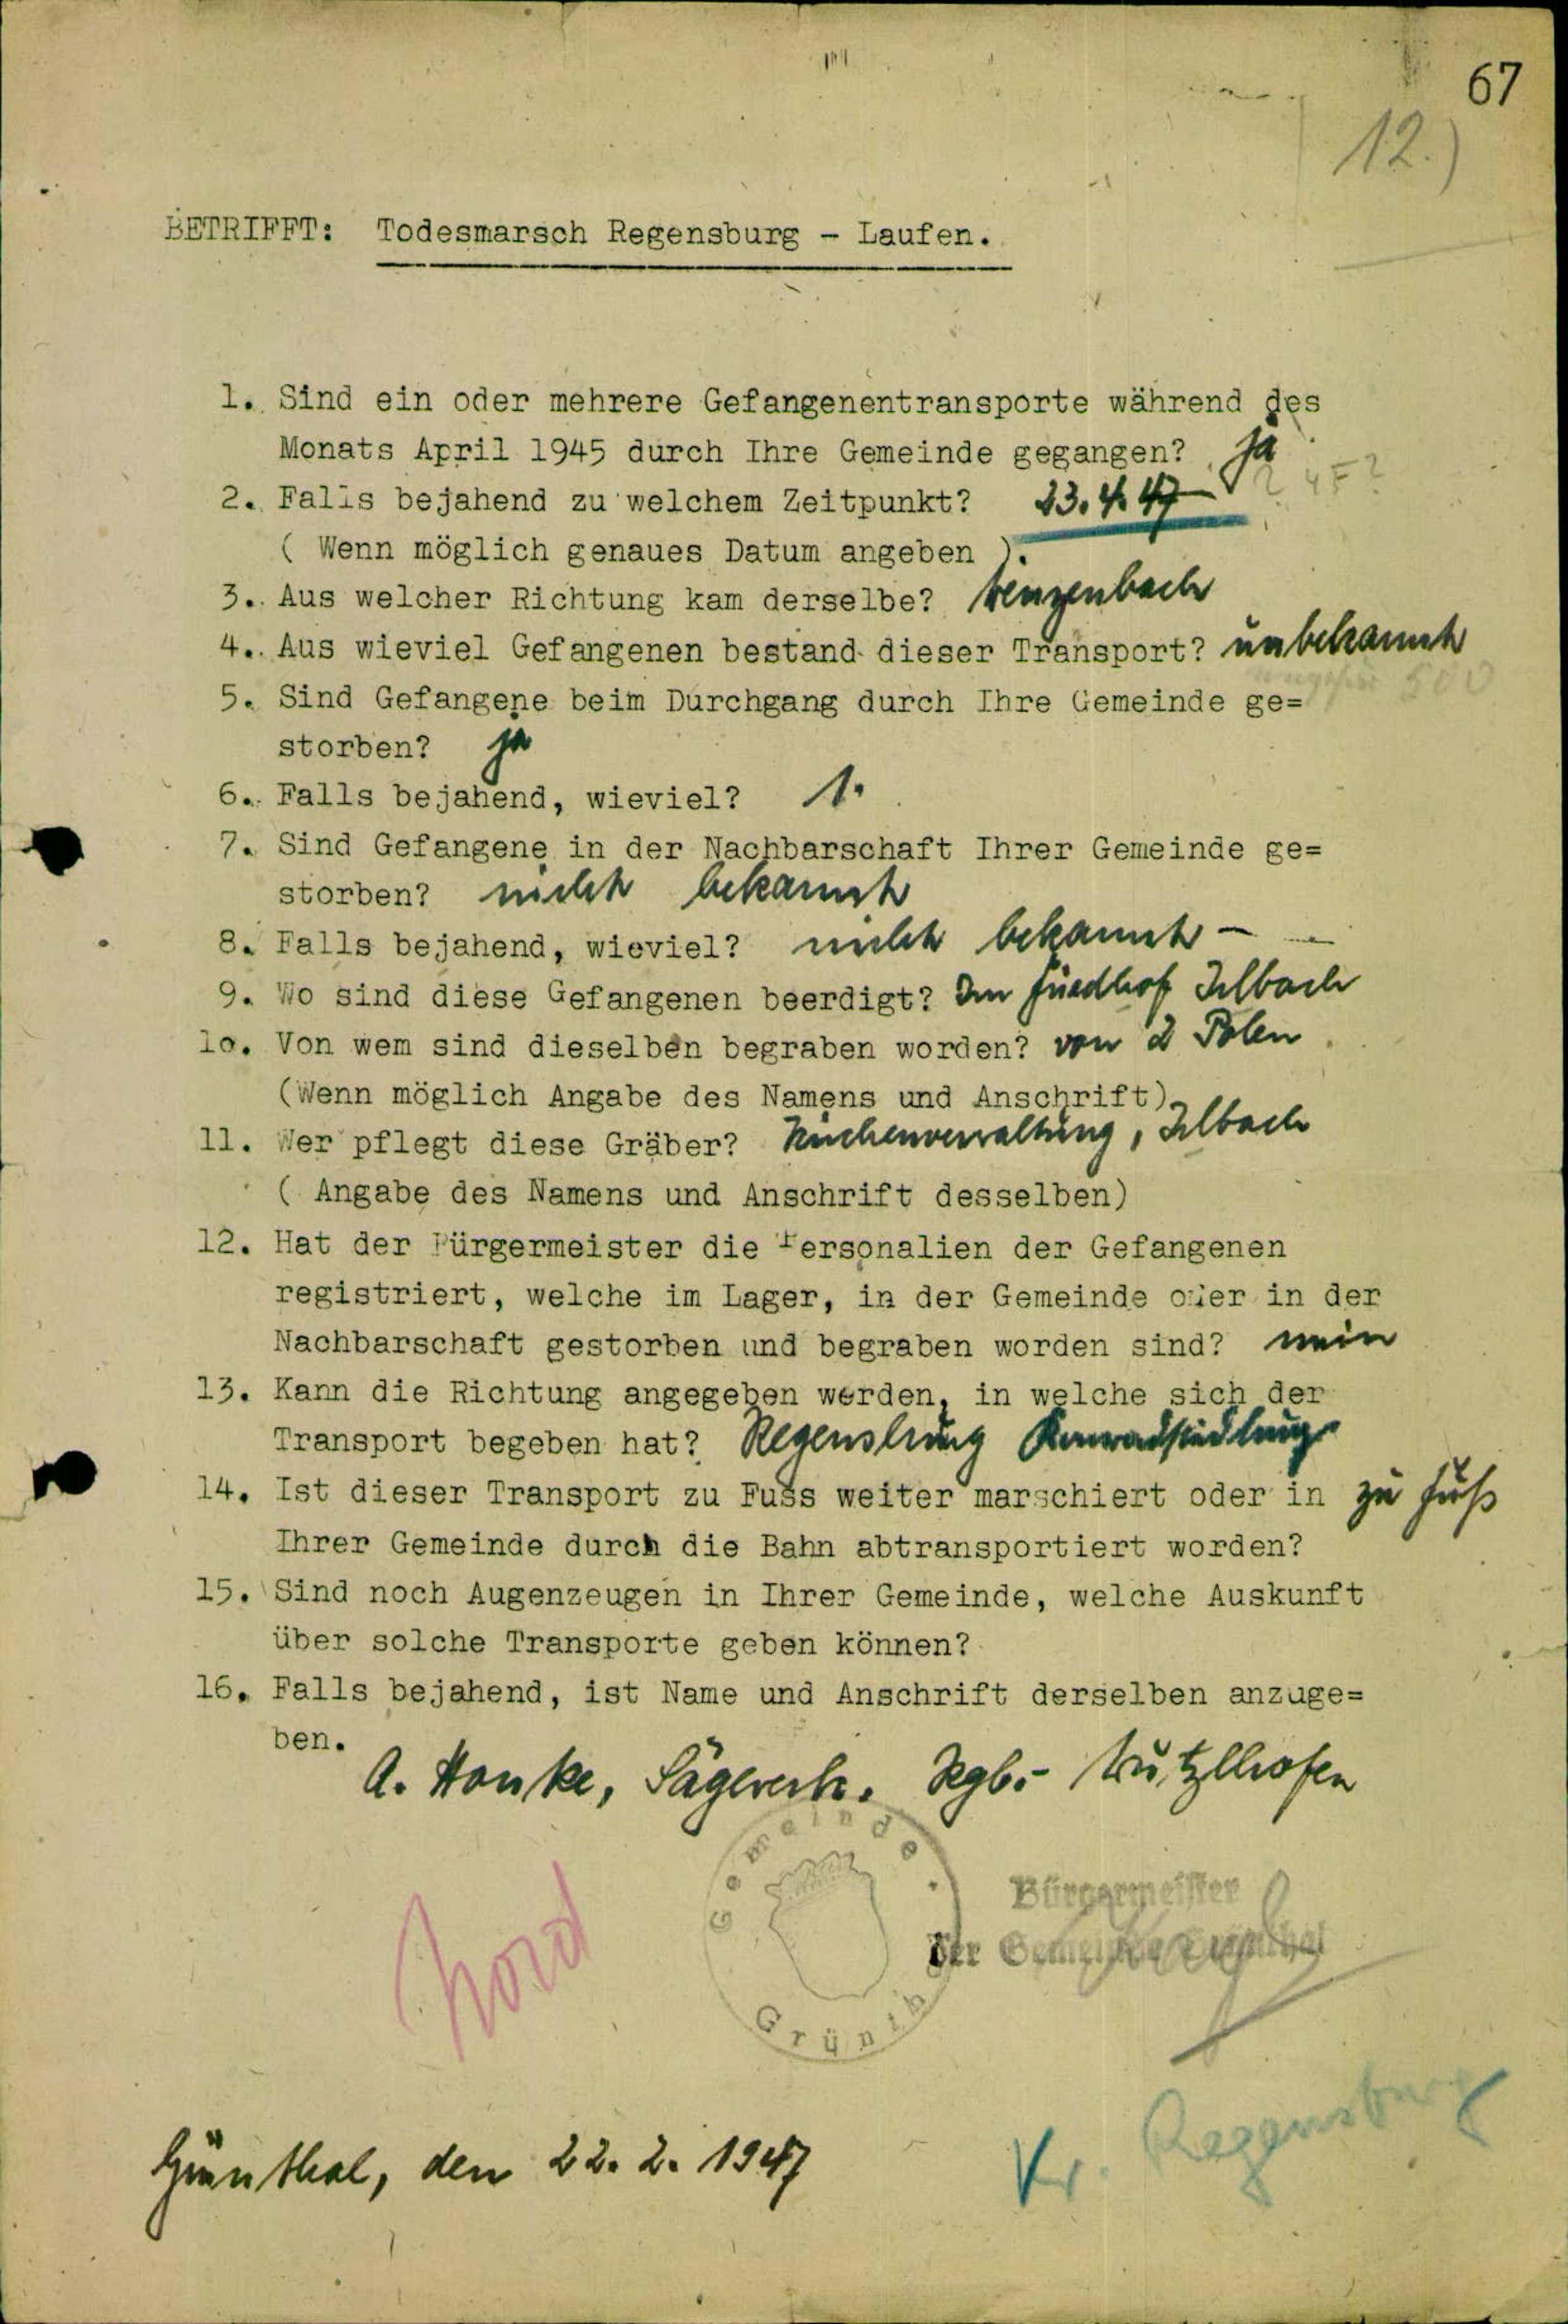 67
12.)
BETRIFFT: Todesmarsch Regensburg - Laufen.
1. Sind ein oder mehrere Gefangenentransporte während des
Monats April 1945 durch Ihre Gemeinde gegangen? ja
2. Falls bejahend zu welchem Zeitpunkt? 23.4.47 ? 45?
( Wenn möglich genaues Datum angeben ).
3. Aus welcher Richtung kam derselbe? Wenzenbach
4. Aus wieviel Gefangenen bestand dieser Transport? unbekannt
500
5. Sind Gefangene beim Durchgang durch Ihre Gemeinde ge=
storben? ja
6. Falls bejahend, wieviel? 1.
7. Sind Gefangene in der Nachbarschaft Ihrer Gemeinde ge=
storben? nicht bekannt
8. Falls bejahend, wieviel? nicht bekannt -
9. Wo sind diese Gefangenen beerdigt? Im Friedhof Irlbach
10. Von wem sind dieselben begraben worden? von 2 Polen
(Wenn möglich Angabe des Namens und Anschrift)
11. Wer pflegt diese Gräber? Kirchenverwaltung, Irlbach
( Angabe des Namens und Anschrift desselben)
12. Hat der Bürgermeister die Personalien der Gefangenen
registriert, welche im Lager, in der Gemeinde oder in der
Nachbarschaft gestorben und begraben worden sind? nein
13. Kann die Richtung angegeben werden, in welche sich der
Transport begeben hat? Regensburg Konradsiedlung
14. Ist dieser Transport zu Fuss weiter marschiert oder in zu Fuß
Ihrer Gemeinde durch die Bahn abtransportiert worden?
15. Sind noch Augenzeugen in Ihrer Gemeinde, welche Auskunft
über solche Transporte geben können?
16. Falls bejahend, ist Name und Anschrift derselben anzuge=
ben.
A. Hanke, Sägewerk, Rgb.- Wutzlhofen
Gemeinde
Grünth
Bürgermeister
der Gemeinde Grünthal
Nord
Grünthal, den 22. 2. 1947
Kr. Regensburg